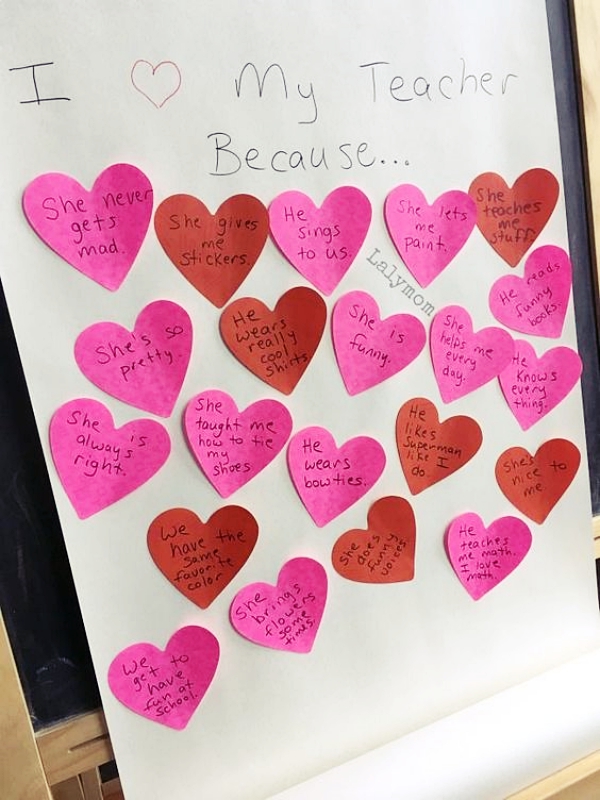 I ♡ My Teacher
Because...
She never
gets
mad.
She gives
me
stickers.
He
sings
to us.
She lets
me
paint.
She
teaches
me
stuff.
Lalymom
He reads
funny
books.
She's so
pretty.
He
wears
really
cool
shirts.
She is
funny.
She
helps me
every
day.
He
knows
every
thing.
She is
always
right.
She
taught me
how to tie
my
shoes.
He
wears
bowties.
He
likes
Superman
like I
do.
She's
nice to
me
We
have the
same
favorite
color
She
does
funny
voices
He
teaches
me math.
I love
math.
She
brings
flowers
some
times.
We
get to
have
fun at
school.